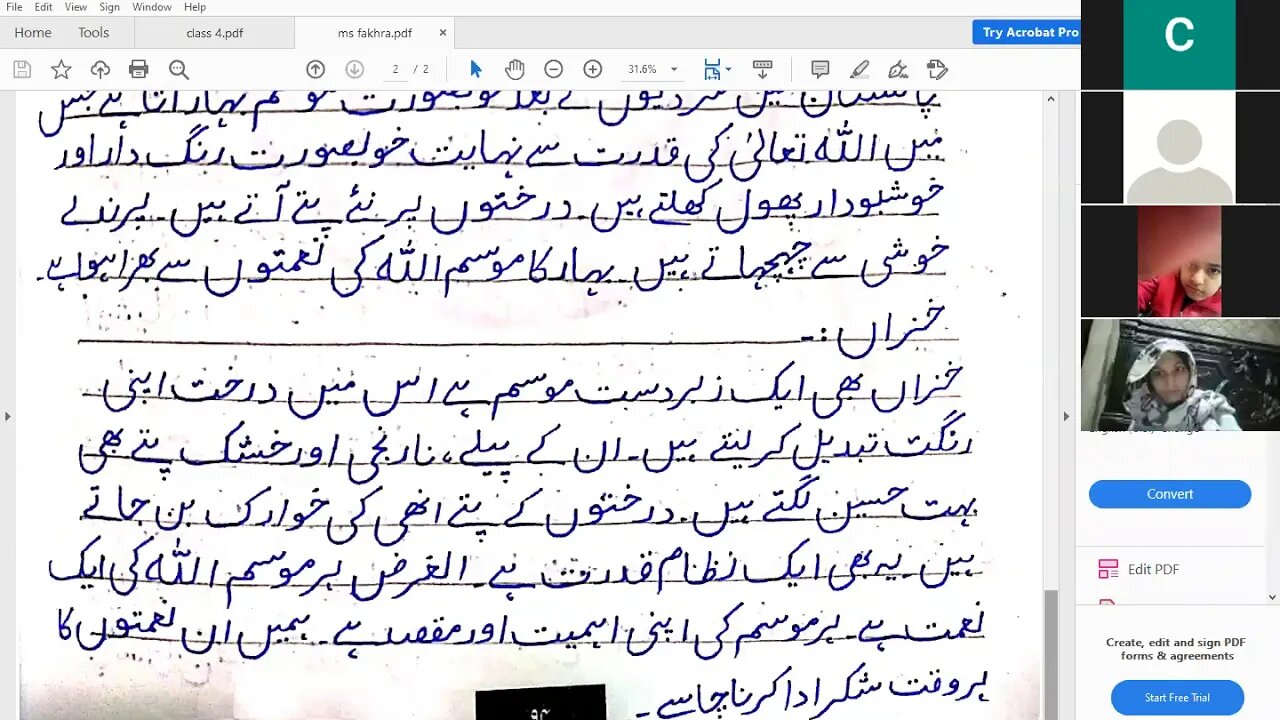 File Edit View Sign Window Help
Home Tools class 4.pdf ms fakhra.pdf × Try Acrobat Pro
2 / 2 31.6%
C
پاکستان میں سردیوں کے بعد خوبصورت موسم بہار آتا ہے جس
میں اللہ تعالیٰ کی قدرت سے نہایت خوبصورت رنگ دار اور
خوشبودار پھول کھلتے ہیں۔ درختوں پر نئے پتے آتے ہیں۔ پرندے
خوشی سے چہچہاتے ہیں۔ بہار کا موسم اللہ کی نعمتوں سے بھرا ہوا ہے۔
خزاں :۔
خزاں بھی ایک زبردست موسم ہے اس میں درخت اپنی
رنگت تبدیل کر لیتے ہیں۔ ان کے پیلے، نارنجی اور خشک پتے بھی
بہت حسین لگتے ہیں۔ درختوں کے پتے انھی کی خوارک بن جاتے
ہیں۔ یہ بھی ایک نظام قدرت ہے۔ الغرض ہر موسم اللہ کی ایک
نعمت ہے۔ ہر موسم کی اپنی اہمیت اور مقصد ہے۔ ہمیں ان نعمتوں کا
ہر وقت شکر ادا کرنا چاہیے۔
Convert
Edit PDF
Create, edit and sign PDF
forms & agreements
Start Free Trial